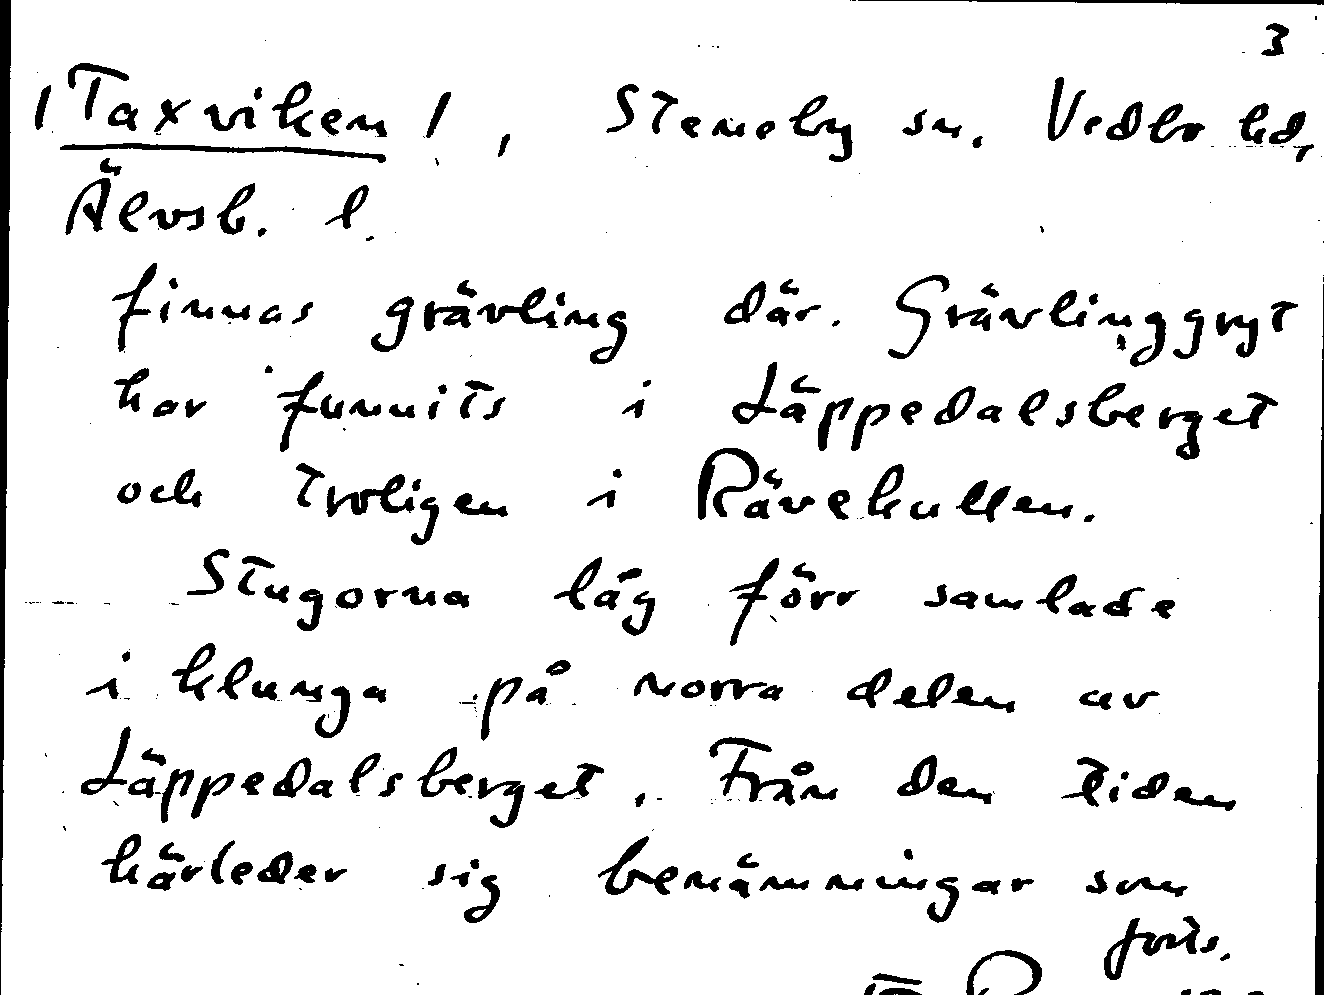 3
/Taxviken/, Steneby sn. Vedbo hd,
Älvsb. l.
finnas grävling där. Grävlinggryt
har funnits i Läppedalsberget
och troligen i Rävekullen.
Stugorna låg förr samlade
i klunga på norra delen av
Läppedalsberget. Från den tiden
härleder sig benämningar som
forts.